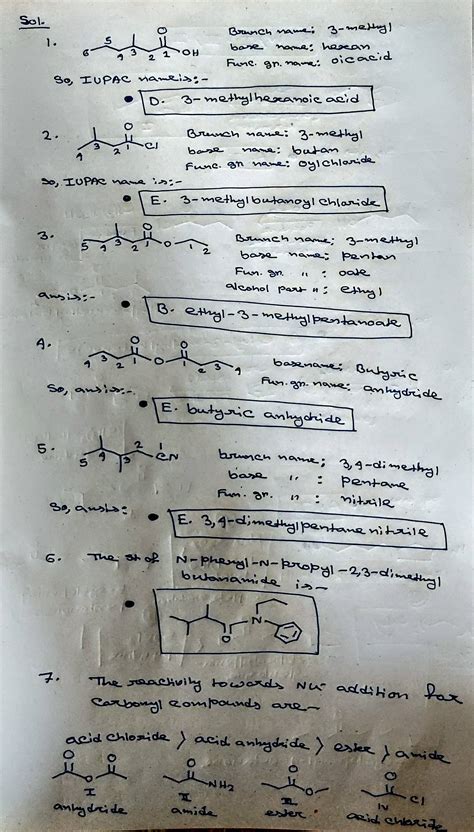 Sol.
1. O OH 6 5 4 3 2 1 Branch name: 3-methyl
base name: hexan
Func. gr. name: oic acid
So, IUPAC name is:-
D. 3-methylhexanoic acid
2. O Cl 4 3 2 1 Branch name: 3-methyl
base name: butan
Func. gr name: oyl chloride
So, IUPAC name is:-
E. 3-methyl butanoyl chloride
3. O O 5 4 3 2 1 1 2 Branch name: 3-methyl
base name: pentan
Fun. gr. " : oate
alcohol part ": ethyl
ans is:-
B. ethyl-3-methylpentanoate
4. O O O 4 3 2 1 1 2 3 4 base name: Butyric
Fun. gr. name: anhydride
So, ans is:-
E. butyric anhydride
5. 5 4 3 2 1 CN branch name: 3,4-dimethyl
base " : pentane
Fun. gr. " : nitrile
So, ans is:
E. 3,4-dimethylpentane nitrile
6. The st of N-phenyl-N-propyl-2,3-dimethyl
butanamide is-
O N
7. The reactivity towards Nu- addition for
carbonyl compounds are-
acid chloride > acid anhydride > ester > amide
O O O I anhydride
O NH2 II amide
O O III ester
O Cl IV acid chloride